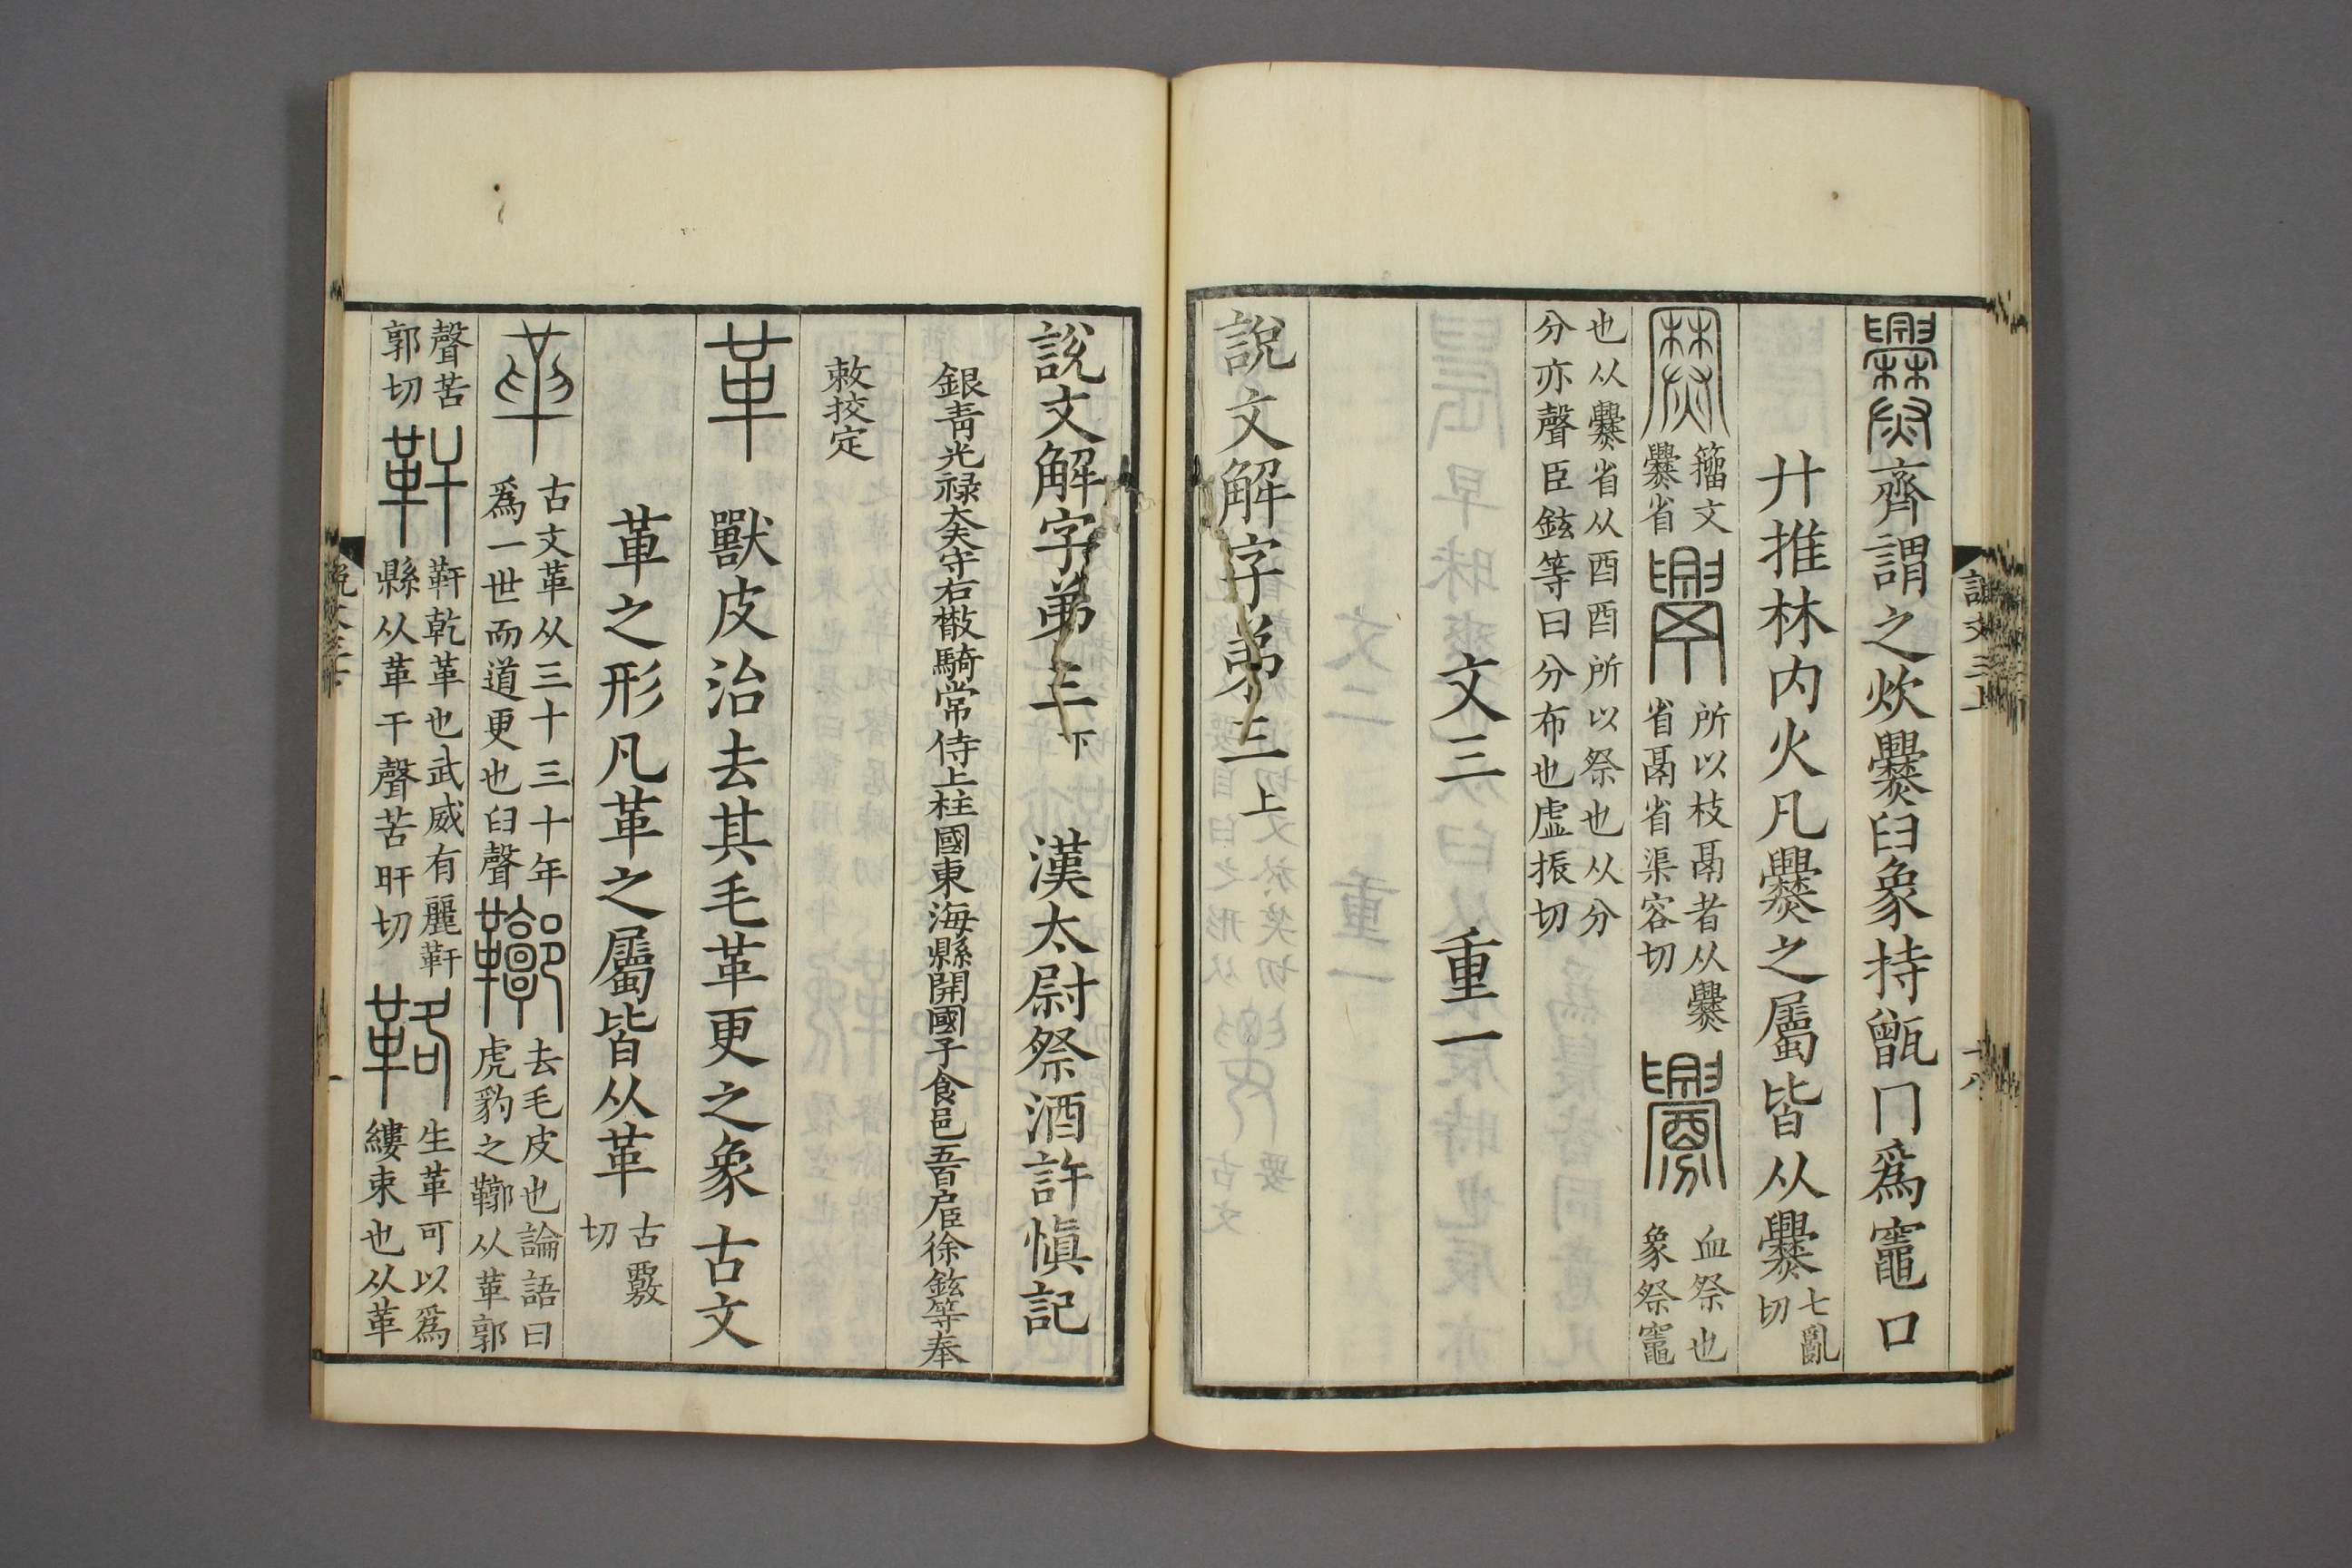 爨齊謂之炊爨臼象持甑冂爲竈口
廾推林内火凡爨之屬皆从爨七亂切
𤐫籒文爨省䡋所以枝鬲者从爨省鬲省渠容切釁血祭也象祭竈
也从爨省从酉酉所以祭也从分分亦聲臣鉉等曰分布也虚振切
文三 重一
說文解字弟三上
說文三上
十八
說文解字弟三下 漢太尉祭酒許慎記
銀青光禄大夫守右散騎常侍上柱國東海縣開國子食邑五百户臣徐鉉等奉
敕挍定
革獸皮治去其毛革更之象古文
革之形凡革之屬皆从革古覈切
𠦶古文革从三十三十年爲一世而道更也臼聲鞹去毛皮也論語曰虎豹之鞹从革郭
聲苦郭切靬靬乾革也武威有麗靬縣从革干聲苦旰切鞈生革可以爲縷束也从革